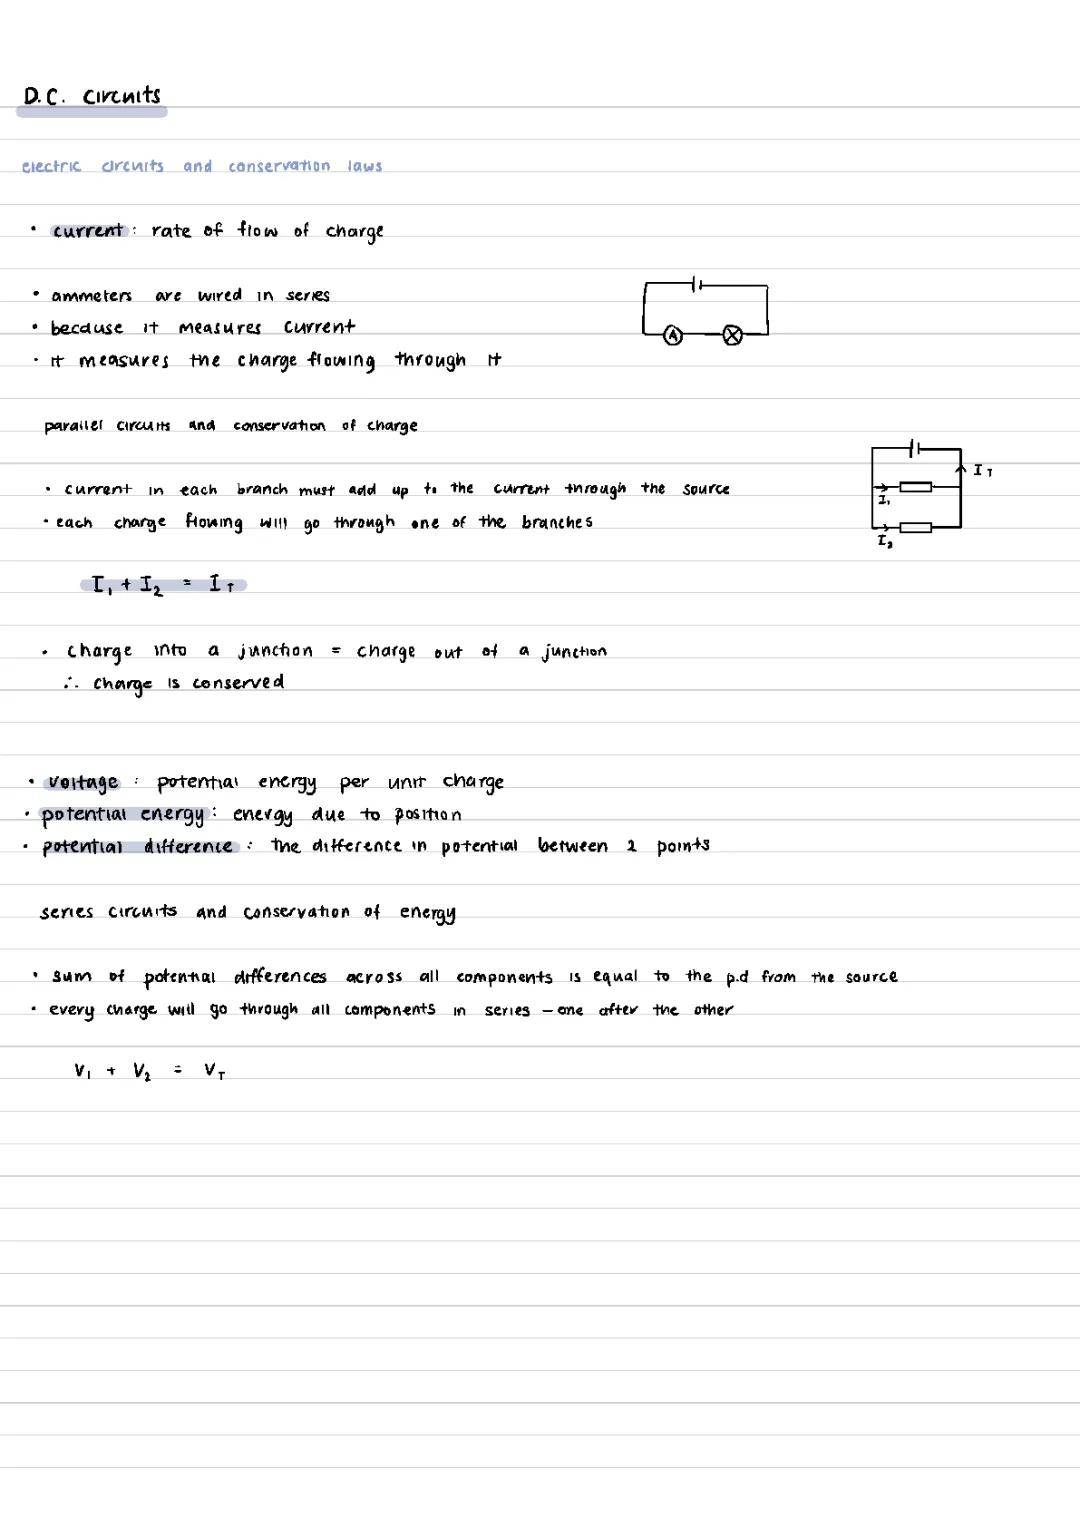 D.C. circuits
electric circuits and conservation laws
• current : rate of flow of charge
• ammeters are wired in series
• because it measures current
• it measures the charge flowing through it
A
parallel circuits and conservation of charge
• current in each branch must add up to the current through the source
• each charge flowing will go through one of the branches
I_T
I₁
I₂
I₁ + I₂ = I_T
• charge into a junction = charge out of a junction
∴ charge is conserved
• voltage : potential energy per unit charge
• potential energy : energy due to position
• potential difference : the difference in potential between 2 points
series circuits and conservation of energy
• sum of potential differences across all components is equal to the p.d from the source
• every charge will go through all components in series – one after the other
V₁ + V₂ = V_T